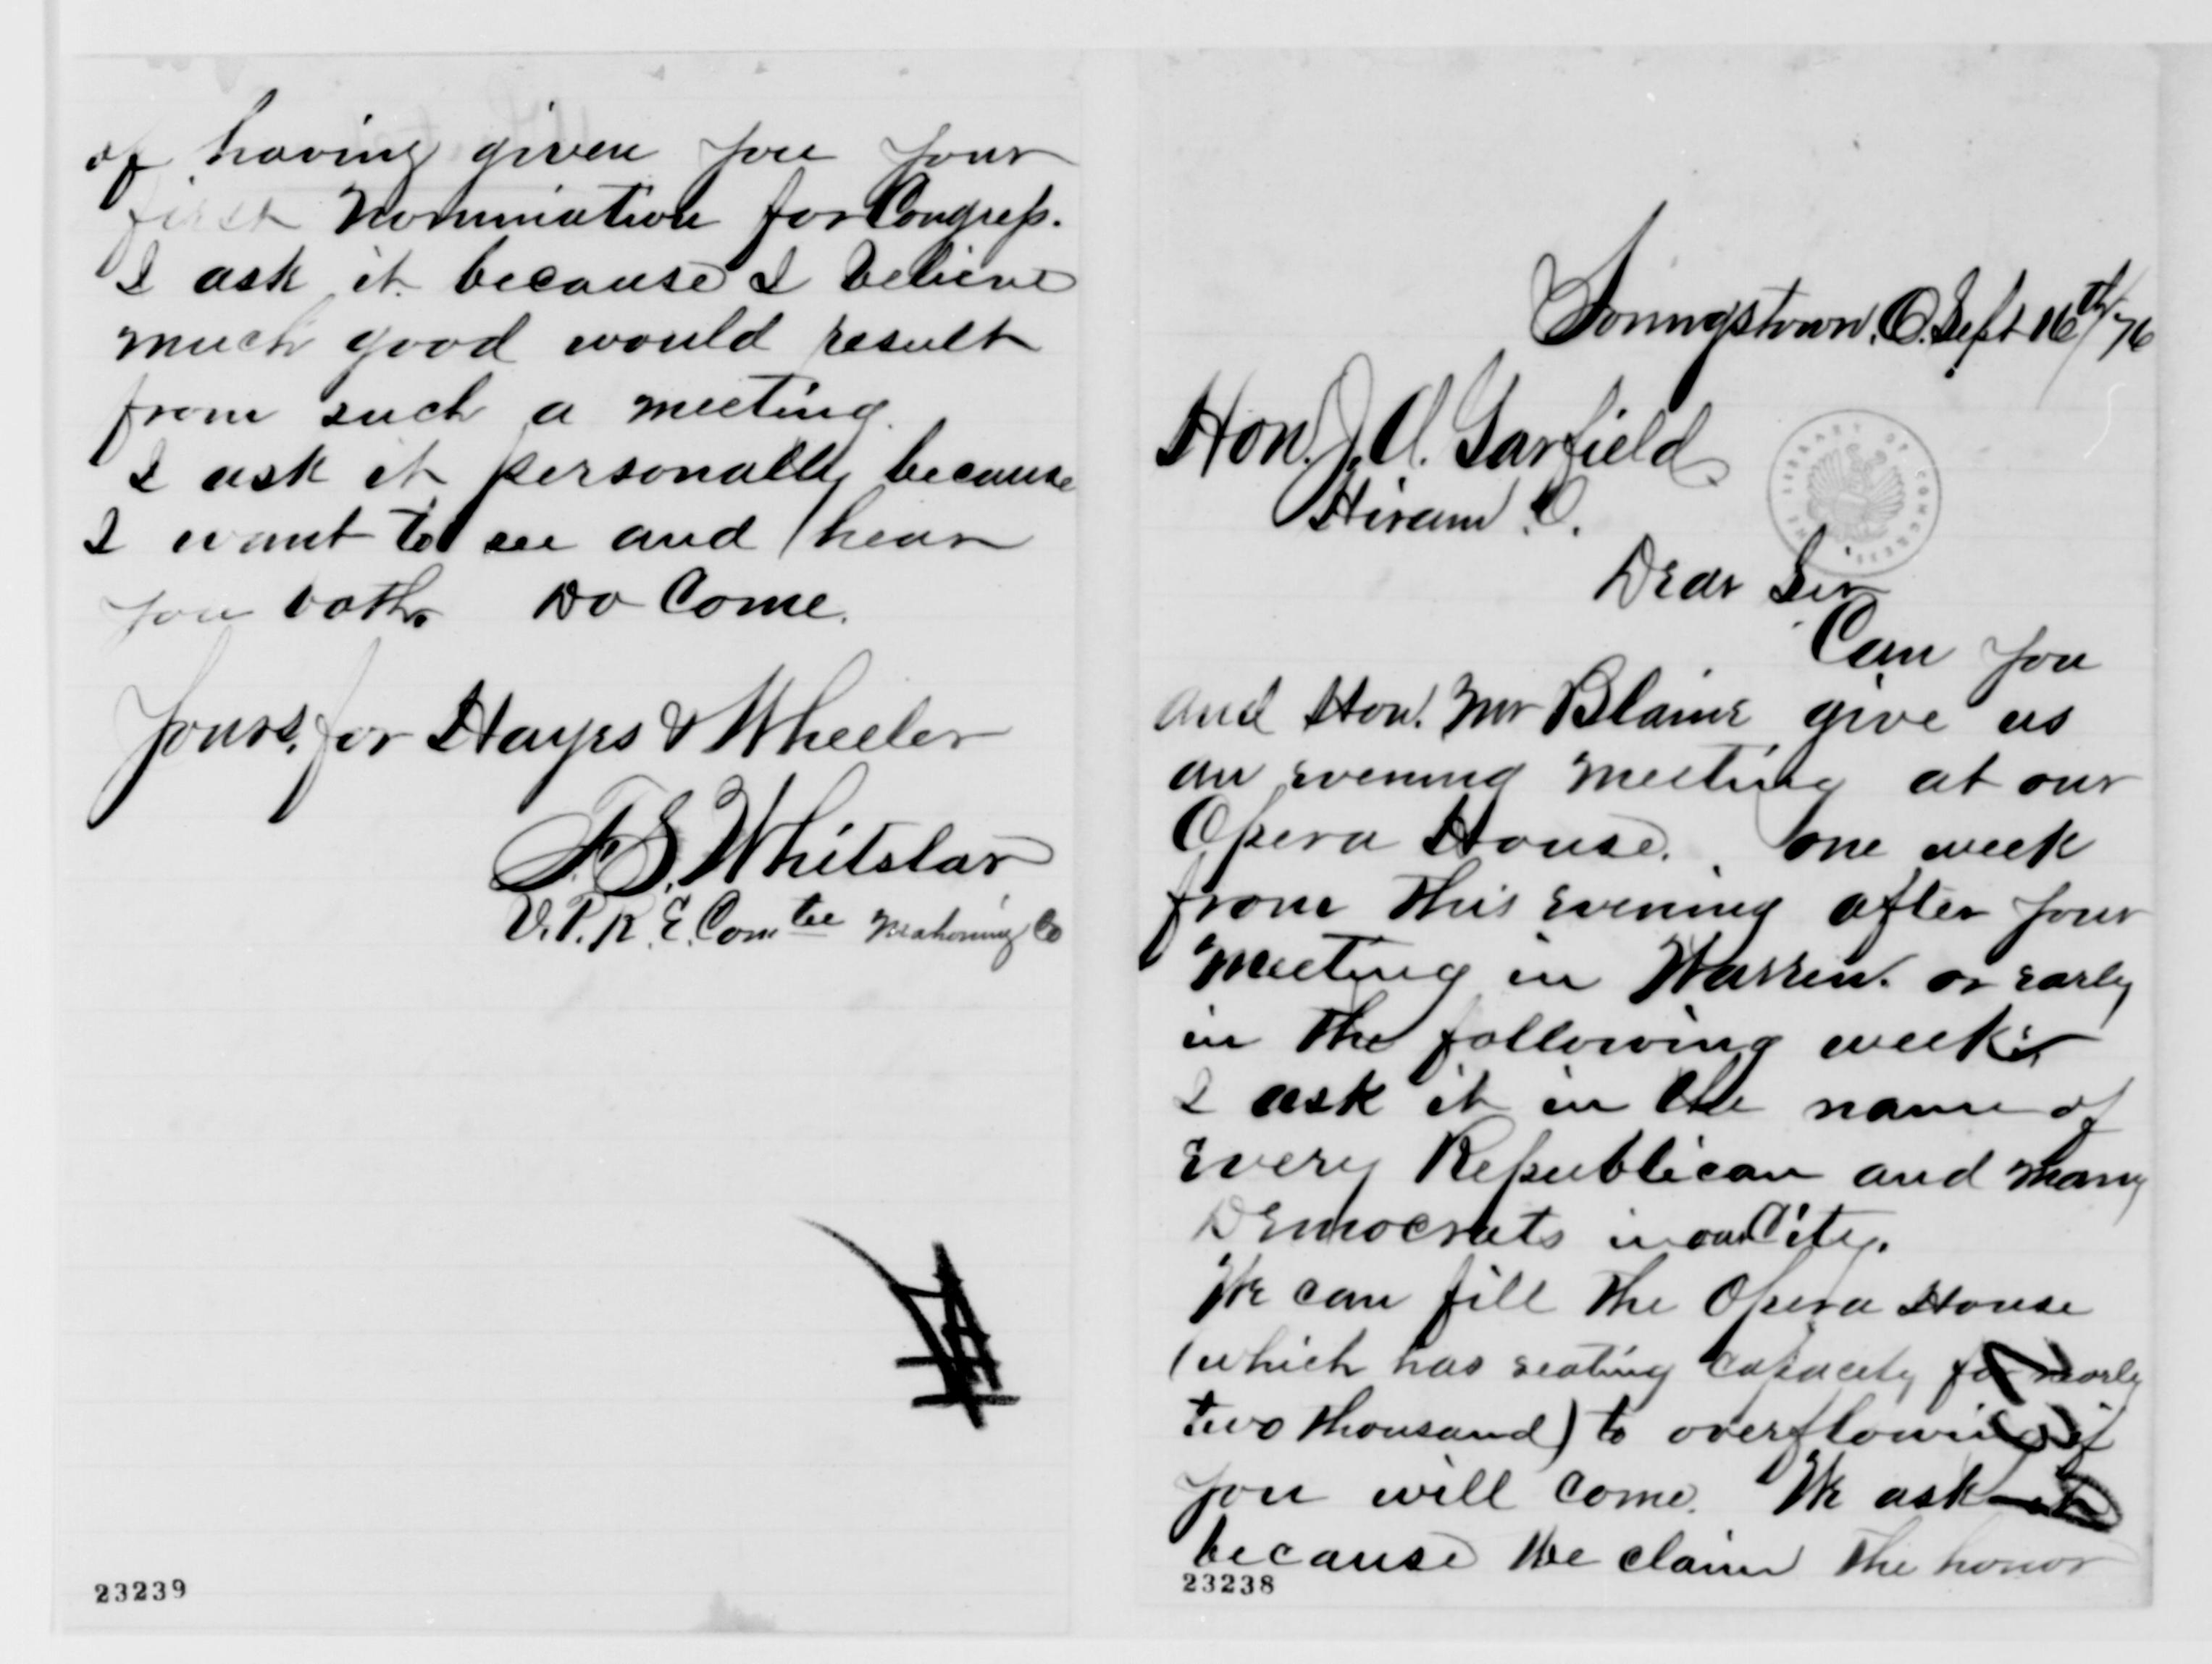 Youngstown, O. Sept 16th/76
Hon. J. A. Garfield
Hiram O.
Dear Sir
Can you
and Hon. Mr Blaine give us
an evening meeting at our
Opera House. one week
from this evening after your
meeting in Warren. or early
in the following week.
I ask it in the name of
every Republican and many
Democrats in our City.
We can fill the Opera House
(which has seating capacity for nearly
two thousand) to overflowing if
you will come. We ask it
because we claim the honor
23238
LIBRARY OF CONGRESS
of having given you your
first nomination for Congress.
I ask it because I believe
much good would result
from such a meeting.
I ask it personally because
I want to see and hear
you both. Do Come.
Yours, for Hayes & Wheeler
Whitslar
V. P. R. E. Comtee Mahoning Co
23239